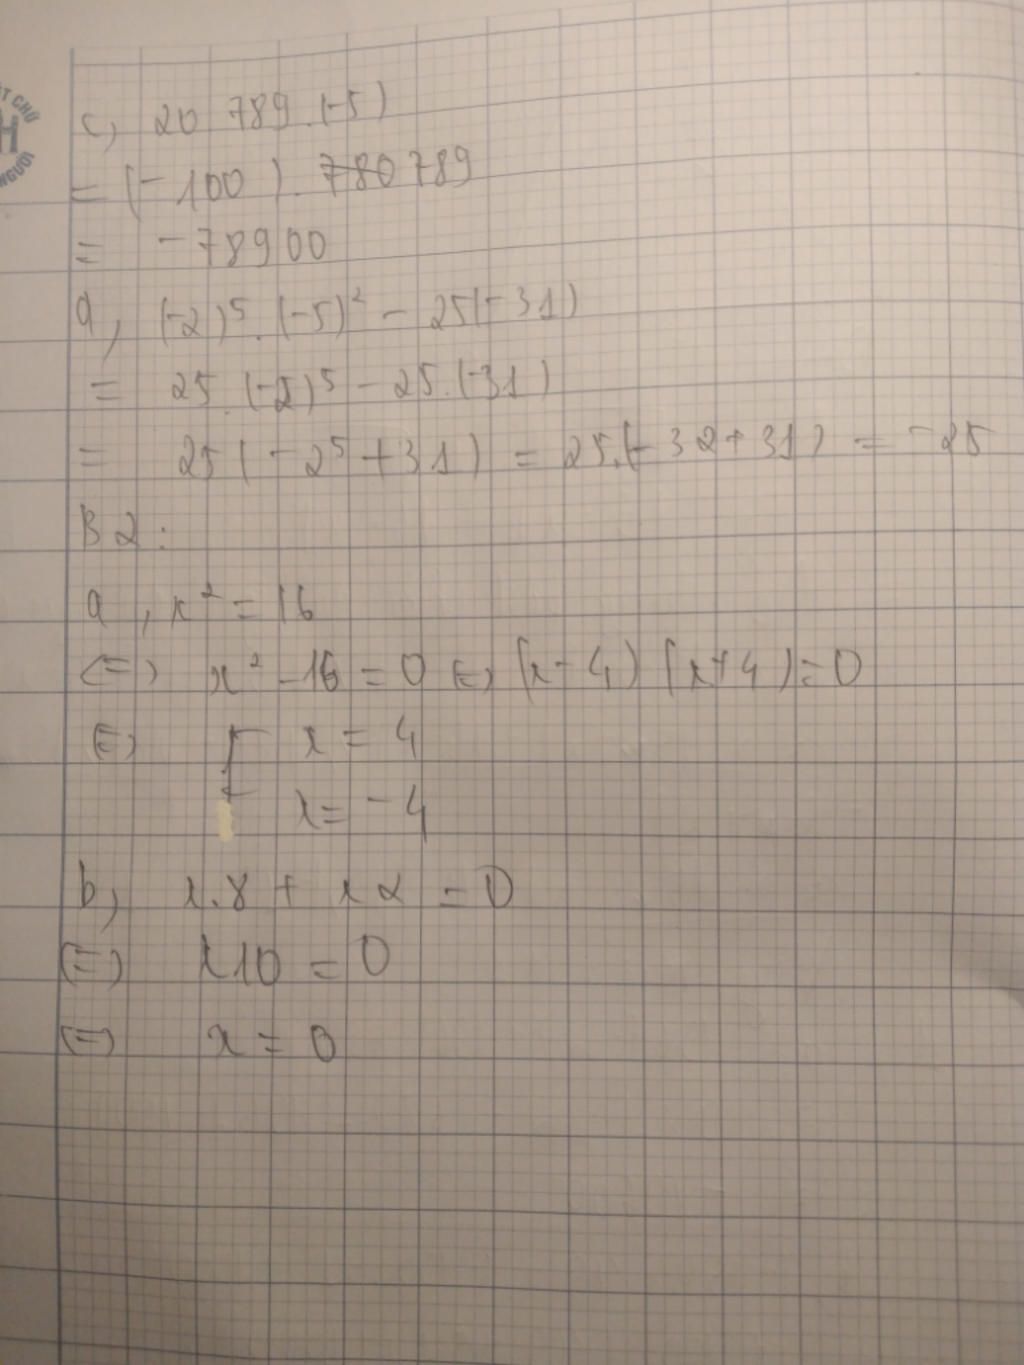 ẤT CHỮ
H
NGƯỜI
c, 20 789.(-5)
= (-100). 780 789
= -78900
d, (-2)⁵.(-5)² - 25(-31)
= 25.(-2)⁵ - 25.(-31)
= 25(-2⁵+31) = 25.(-32+31) = -25
B2:
a, x² = 16
(=) x² - 16 = 0 (=) (x-4)(x+4)=0
(=) [ x = 4
x = -4
b, x.8 + x2 = 0
(=) x10 = 0
(=) x = 0